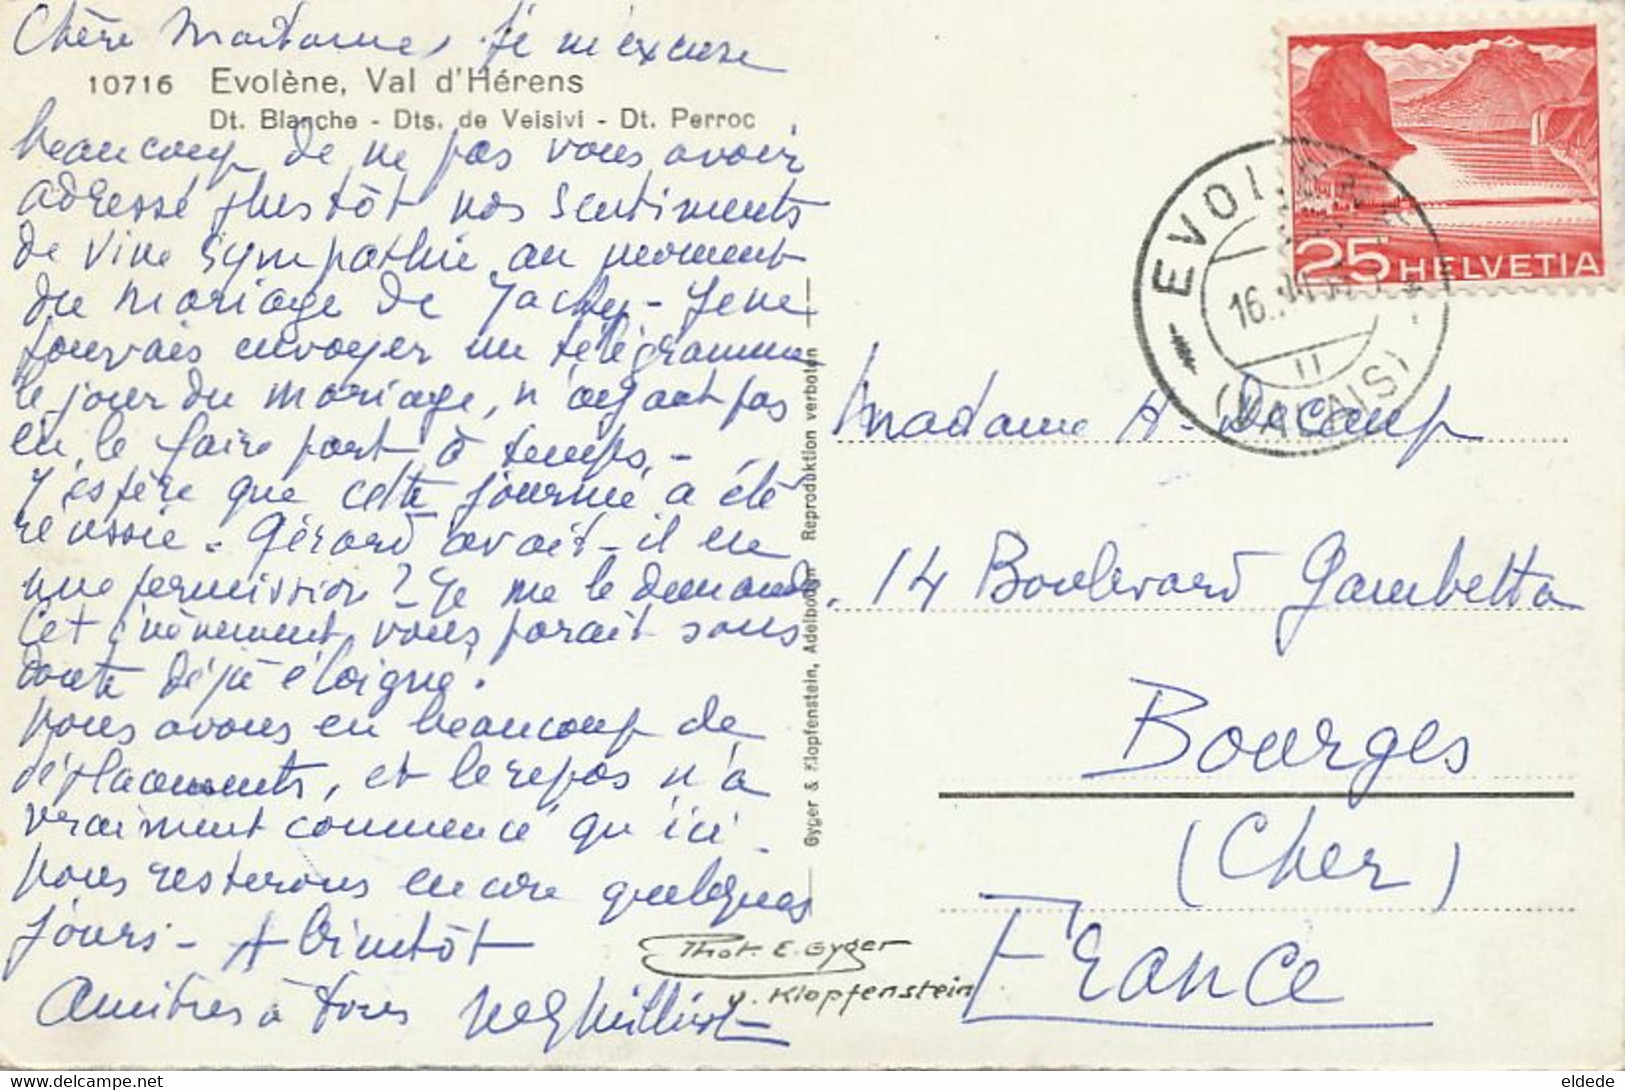 Chère Madame, Je m'excuse
10716 Evolène, Val d'Hérens
Dt. Blanche - Dts. de Veisivi - Dt. Perroc
beaucoup de ne pas vous avoir
adressé plus tôt nos sentiments
de vive sympathie au moment
du mariage de Jacky - Je ne
pouvais envoyer un télégramme
le jour du mariage, n'ayant pas
eu le faire part à temps. -
J'espère que cette journée a été
réussie. Gérard avait-il eu
une permission? Je me le demande.
Cet évènement vous parait sans
doute déjà éloigné.
Nous avons eu beaucoup de
déplacements, et le repos n'a
vraiment commencé qu'ici -
Nous resterons encore quelques
jours - A bientôt
Amitiés à tous
Gyger & Klopfenstein, Adelboden Reproduktion verboten
Phot. E. Gyger
Klopfenstein
25 HELVETIA
16.
(VALAIS)
Madame A. Decamp
14 Boulevard Gambetta
Bourges
(Cher)
France
eldede